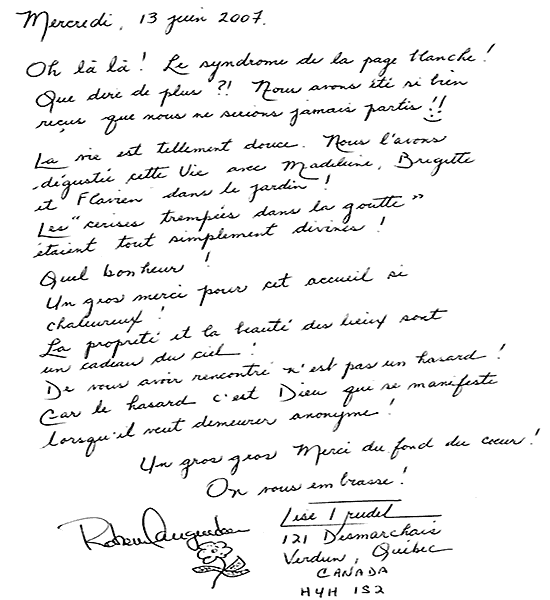 Mercredi, 13 juin 2007.
Oh là là ! Le syndrome de la page blanche !
Que dire de plus ?! Nous avons été si bien
reçus que nous ne serions jamais partis !!
La vie est tellement douce. Nous l'avons
dégustée cette Vie avec Madeleine, Brigitte
et Flavien dans le jardin !
Les "cerises trempées dans la goutte"
étaient tout simplement divines !
Quel bonheur !
Un gros merci pour cet accueil si
chaleureux !
La propreté et la beauté des lieux sont
un cadeau du ciel !
De vous avoir rencontré n'est pas un hasard !
Car le hasard c'est Dieu qui se manifeste
lorsqu'il veut demeurer anonyme !
Un gros gros Merci du fond du coeur !
On vous embrasse !
Lise Trudel
121 Desmarchais
Verdun, Québec
CANADA
H4H 1S2